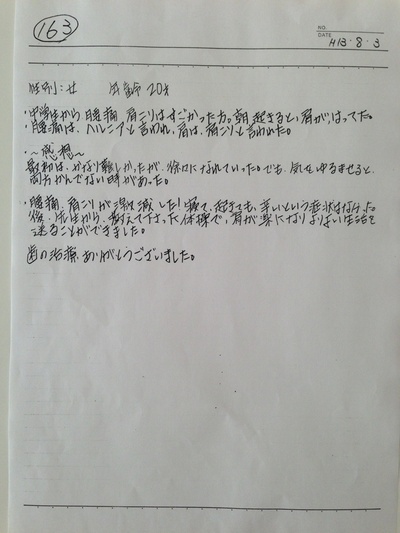 163
NO.
DATE H13・8・3
性別:女 年齢 20才
・中学生から 腰痛 肩こりはすごかった方。朝起きると、肩が、はってた。
・腰痛は、ヘルニアと言われ、肩は、肩こりと言われた。
・〜感想〜
最初は、かなり難しかったが、徐々になれていった。でも、気をゆるませると、
両方かんでない時があった。
・腰痛、肩こりが激減した!寝て、起きても、辛いという症状はなくなった。
後、先生から、教えて下さった体操で、肩が楽になりよりよい生活を
送ることができました。
歯の治療、ありがとうございました。